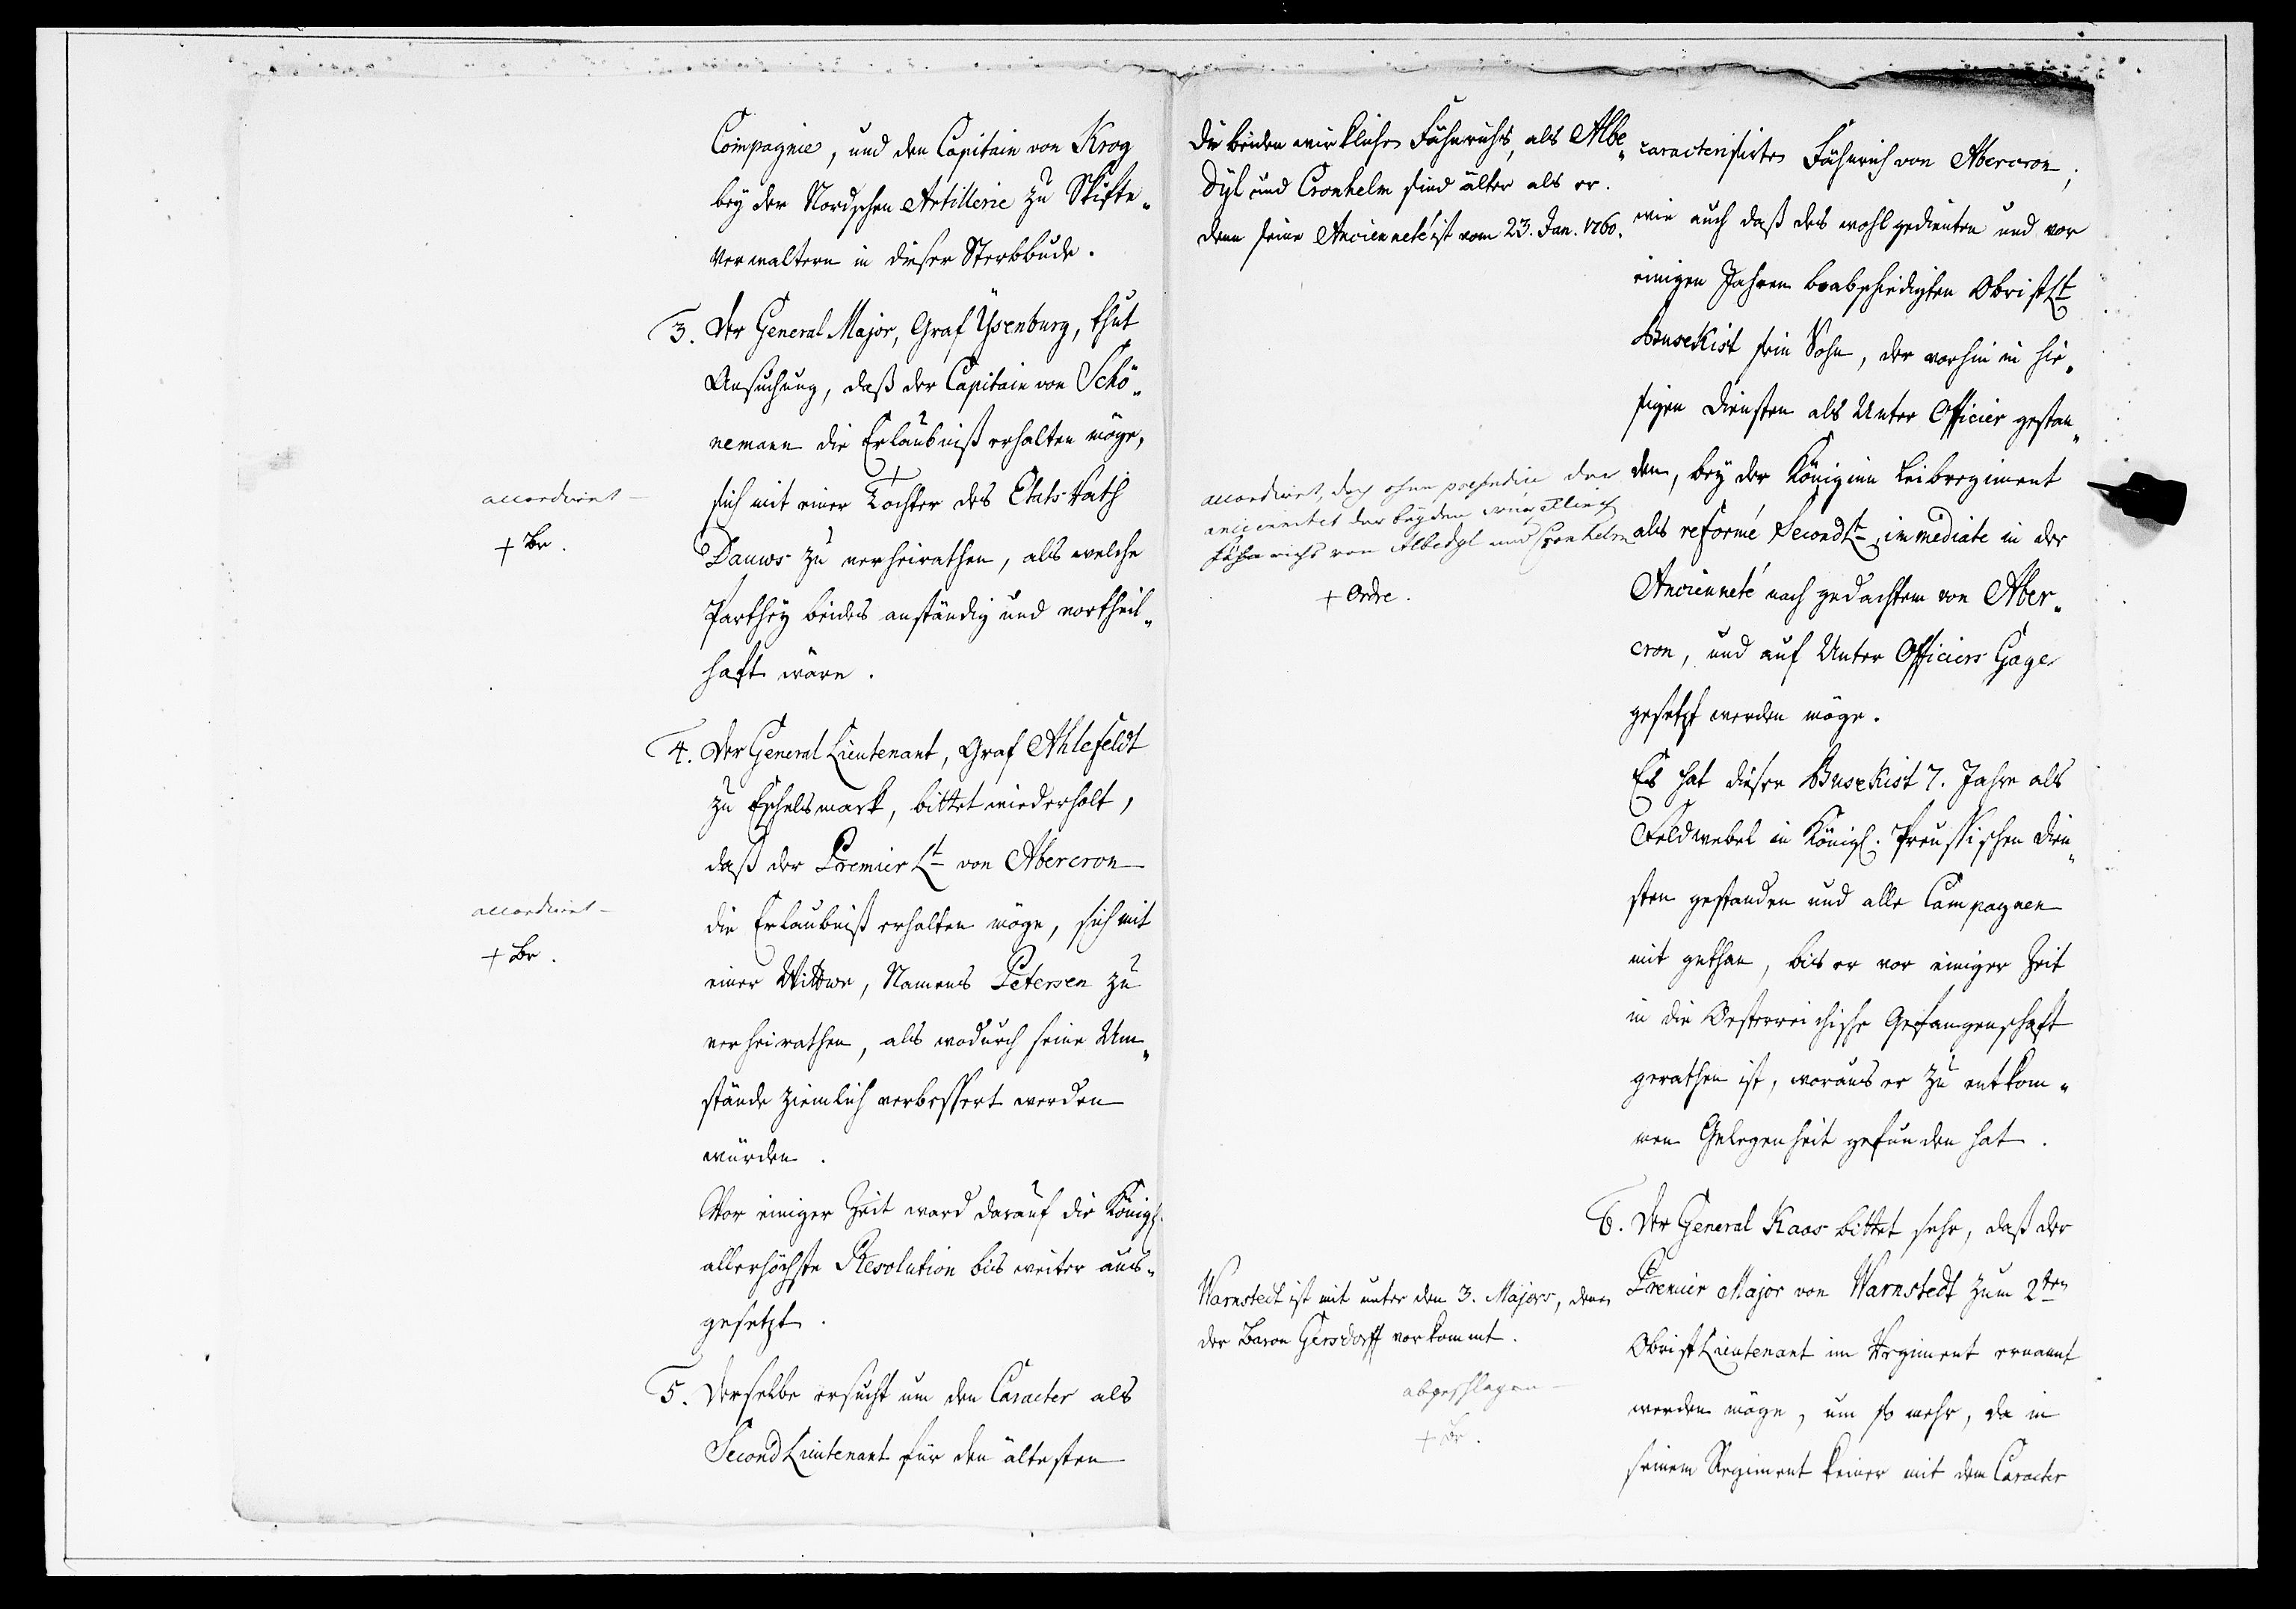 Compagnie, und den Capitain von Krog
bey der Nordschen Artillerie zu Skifte„
Verwaltern in dieser Sterbbude.
3. Der General Major, Graf Ysenburg, thut
Ansuchung, daß der Capitain von Schö„
nemann die Erlaubniß erhalten möge,
sich mit einer Tochter des Etats Rath
Dauws zu verheirathen, als welche
Parthey beides anständig und vortheil„
haft wäre.
accordiret —
+ Br.
4. Der General Lieutenant, Graf Ahlefeldt
zu Eschelsmark, bittet wiederholt,
daß der Premier Lt von Abercron
die Erlaubniß erhalten möge, sich mit
einer Wittwe, Namens Petersen zu
verheirathen, als wodurch seine Um„
stände ziemlich verbessert werden
würden.
accordiret —
+ Br.
Vor einiger Zeit ward darauf die Königl.
allerhöchste Resolution bis weiter aus„
gesetzt.
5. Derselbe ersucht um den Caracter als
Second Lieutenant für den ältesten
Die beiden wirkliche Fähnrichs, als Albe„
dyl und Cronhelm sind älter als er.
denn seine Ancienneté ist vom 23. Jan. 1760.
caracterisirten Fähnrich von Abercron,
wie auch daß des wohlgedienten und vor
einigen Jahren beabschiedigten ObristLt
Busekist sein Sohn, der vorhin in hie„
sigen Diensten als Unter Officier gestan„
den, bey der Königinn Leibregiment
als reformé SecondLt, immediate in der
Ancienneté nach gedachtem von Aber„
cron, und auf Unter Officiers Gage
gesetzt werden möge.
accordiret, doch ohne praejudice der
ancienitet der beyden würcklich
Fähnrichs von Albedyl und Cronhelm
+ Ordre.
Es hat dieser Busekist 7. Jahre als
Feldwebel in Königl. Preussischen Dien„
sten gestanden und alle Campagnen
mit gethan, bis er vor einiger Zeit
in die Oesterreichische Gefangenschaft
gerathen ist, woraus er zu entkom„
men Gelegenheit gefunden hat.
6. Der General Kaas bittet sehr, daß der
Premier Major von Warnstedt zum 2ten
Obrist Lieutenant im Regiment ernannt
werden möge, um so mehr, da in
seinem Regiment keiner mit dem Caracter
Warnstedt ist mit unter den 3. Majors, denen
der Baron Gersdorff vorkommt.
abgeschlagen —
+ Br.